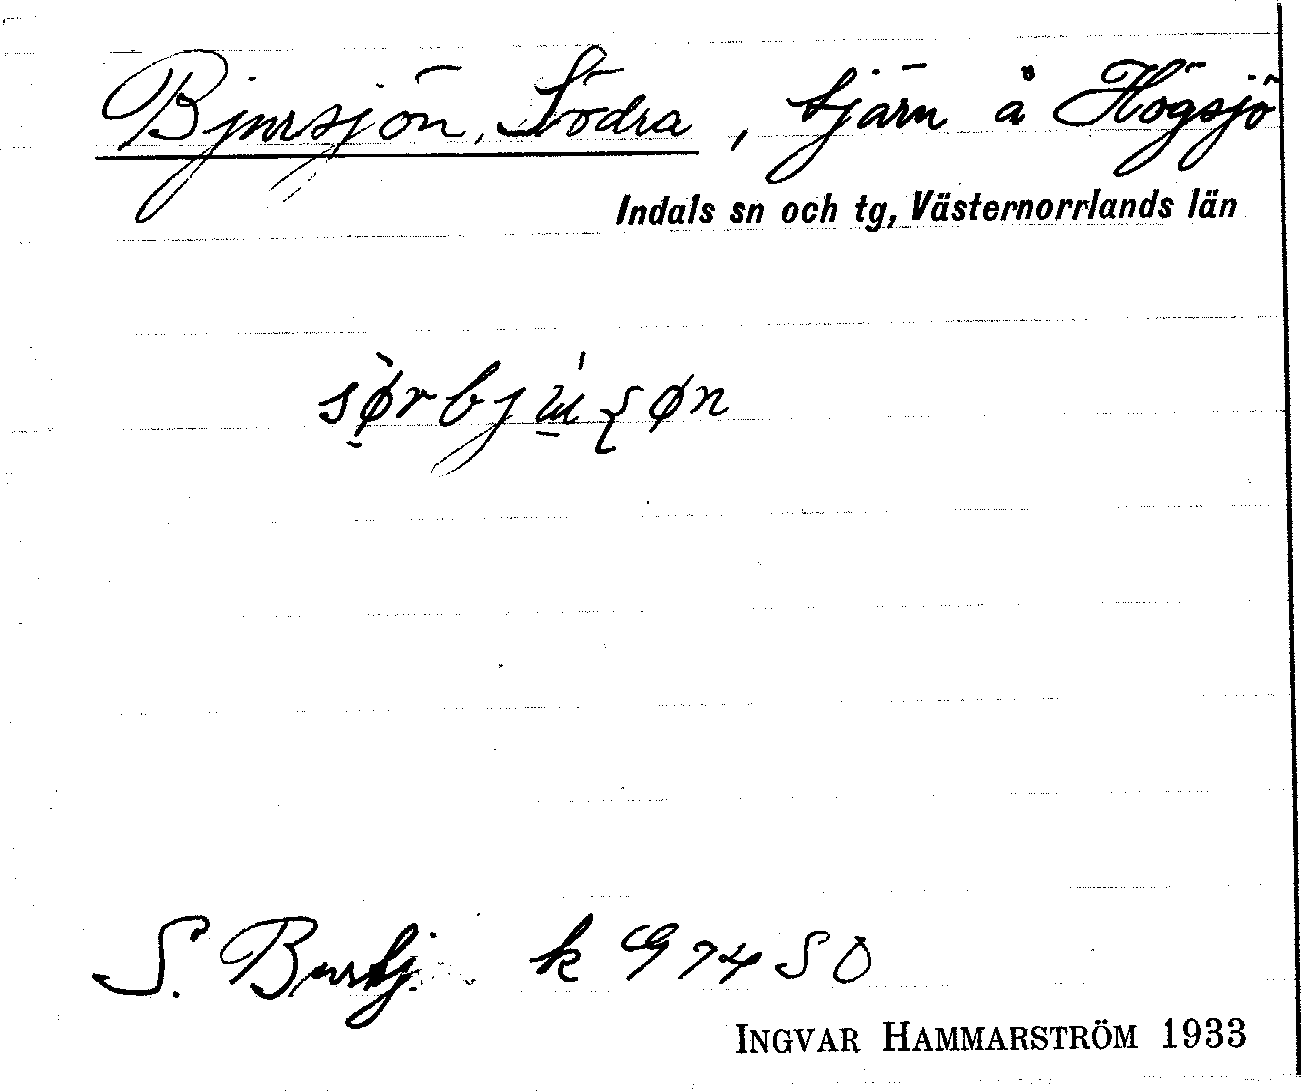 Bjursjön, Södra, tjärn å Högsjö
Indals sn och tg, Västernorrlands län
S. k 974 SO
INGVAR HAMMARSTRÖM 1933